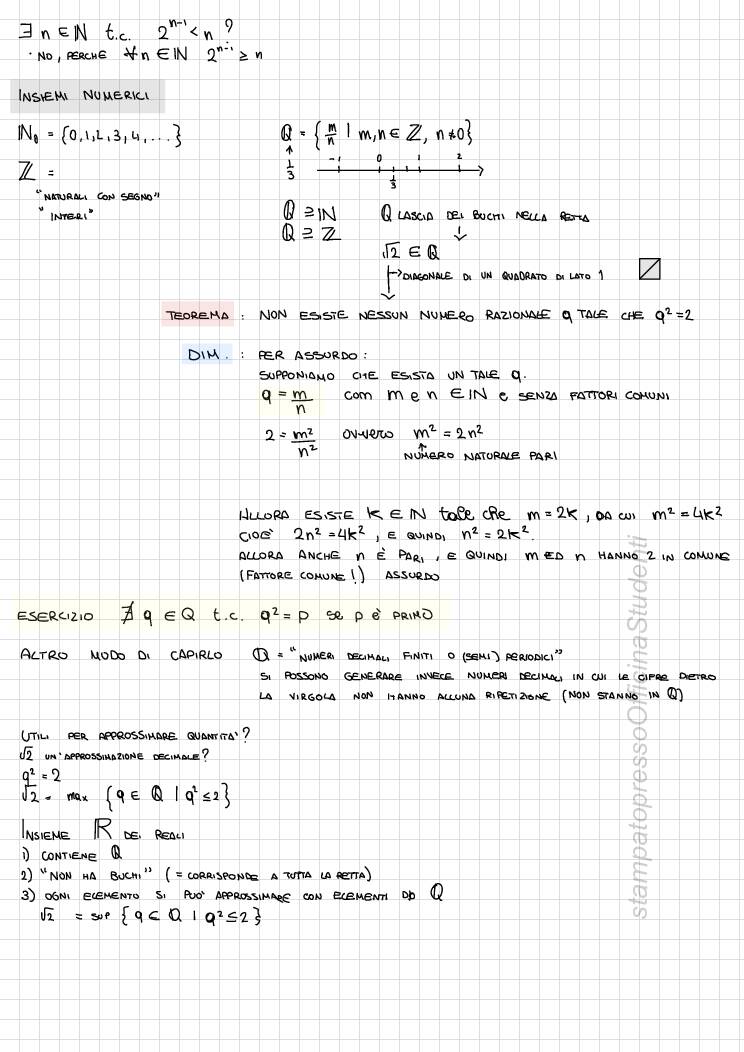 ∃ n ∈ ℕ t.c. 2ⁿ⁻¹ < n ?
· NO, PERCHE ∀ n ∈ ℕ 2ⁿ⁻¹ ≥ n
INSIEMI NUMERICI
ℕ₀ = {0,1,2,3,4,...}
ℤ =
"NATURALI CON SEGNO"
"INTERI"
ℚ = {m/n | m,n ∈ ℤ, n ≠ 0}
↑
1/3
-1 0 1/3 1 2
ℚ ⊇ ℕ
ℚ ⊇ ℤ
ℚ LASCIA DEI BUCHI NELLA RETTA
↓
√2 ∈ ℚ
→ DIAGONALE DI UN QUADRATO DI LATO 1
TEOREMA : NON ESISTE NESSUN NUMERO RAZIONALE q TALE CHE q² = 2
DIM. : PER ASSURDO :
SUPPONIAMO CHE ESISTA UN TALE q.
q = m/n con m e n ∈ ℕ e SENZA FATTORI COMUNI
2 = m²/n² ovvero m² = 2n²
↑
NUMERO NATURALE PARI
ALLORA ESISTE K ∈ ℕ tale che m = 2K , DA CUI m² = 4K²
CIOÈ 2n² = 4K² , E QUINDI n² = 2K².
ALLORA ANCHE n È PARI , E QUINDI m ED n HANNO 2 IN COMUNE
(FATTORE COMUNE !) ASSURDO
ESERCIZIO ∄ q ∈ ℚ t.c. q² = p se p È PRIMO
ALTRO MODO DI CAPIRLO ℚ = "NUMERI DECIMALI FINITI O (SEMI) PERIODICI"
SI POSSONO GENERARE INVECE NUMERI DECIMALI IN CUI LE CIFRE DIETRO
LA VIRGOLA NON HANNO ALCUNA RIPETIZIONE (NON STANNO IN ℚ)
UTILI PER APPROSSIMARE QUANTITA'?
√2 UN'APPROSSIMAZIONE DECIMALE?
q² = 2
√2 = max {q ∈ ℚ | q² ≤ 2}
INSIEME ℝ DEI REALI
1) CONTIENE ℚ
2) "NON HA BUCHI" ( = CORRISPONDE A TUTTA LA RETTA)
3) OGNI ELEMENTO SI PUO' APPROSSIMARE CON ELEMENTI DI ℚ
√2 = sup {q ∈ ℚ | q² ≤ 2}
stampatopressoOfficinaStudenti